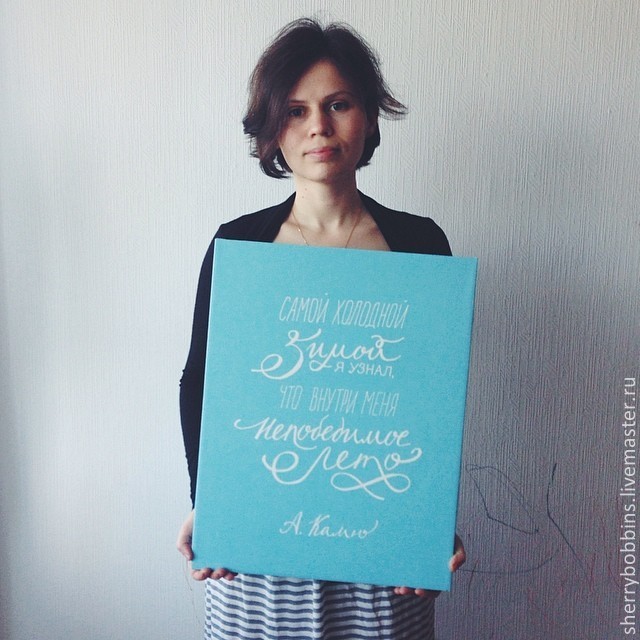 САМОЙ ХОЛОДНОЙ
Зимой
Я УЗНАЛ,
ЧТО ВНУТРИ МЕНЯ
Непобедимое
лето
А. Камю
sherrybobbins.livemaster.ru